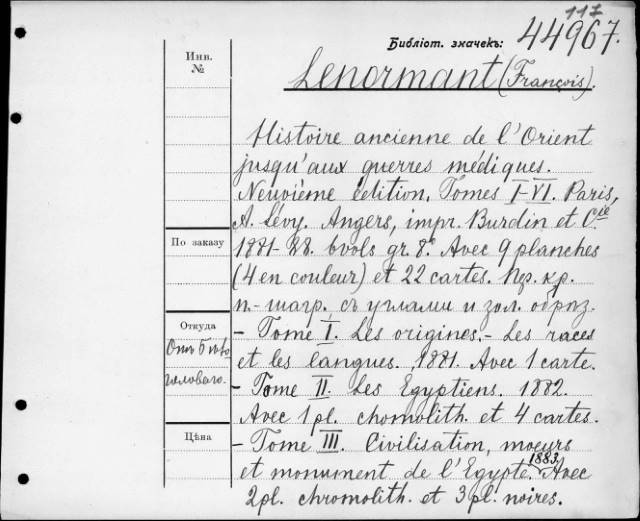 117
Библіот. значекъ: 44967.
Инв. №
Lenormant (François).
Histoire ancienne de l'Orient
jusqu'aux guerres médiques.
Neuvième édition. Tomes I-VI. Paris,
A. Lévy. Angers, impr. Burdin et Cie
1881-88. 6 vols gr. 8º. Avec 9 planches
(4 en couleur) et 22 cartes. Пер. кр.
п.-шагр. съ углами и зол. обрѣз.
- Tome I. Les origines.- Les races
et les langues. 1881. Avec 1 carte.
- Tome II. Les Egyptiens. 1882.
Avec 1 pl. chomolith. et 4 cartes.
- Tome III. Civilisation, moeurs
et monument de l'Egypte. 1883. Avec
2 pl. chromolith. et 3 pl. noires.
По заказу
Откуда
Отъ
Цѣна